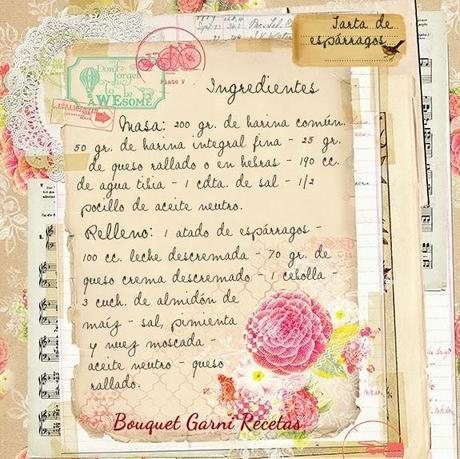 Tarta de
espárragos
Don't
forget
to be
AWESOME
Plate V
Ingredientes
Masa: 200 gr. de harina común.
50 gr. de harina integral fina - 25 gr.
de queso rallado o en hebras - 190 cc.
de agua tibia - 1 cdta. de sal - 1/2
pocillo de aceite neutro.
Relleno: 1 atado de espárragos -
100 cc. leche descremada - 70 gr. de
queso crema descremado - 1 cebolla -
3 cuch. de almidón de
maíz - sal, pimienta
y nuez moscada -
aceite neutro - queso
rallado.
Bouquet Garni Recetas